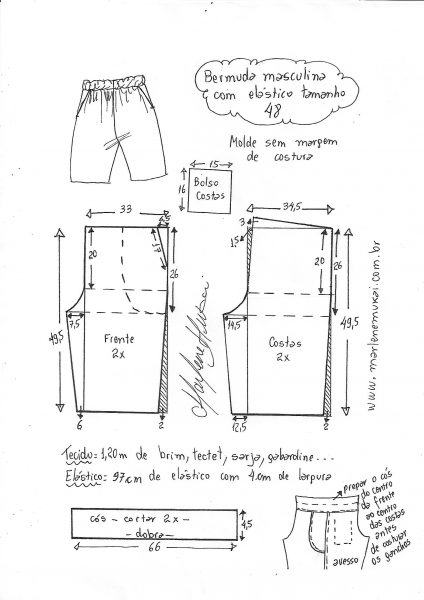 Bermuda masculina
com elástico tamanho
48
Molde sem margem
de costura
15
16
Bolso
Costas
33
4,5
17
20
26
49,5
7,5
Frente
2x
6
2
34,5
3
1,5
20
26
49,5
14,5
Costas
2x
12,5
2
Marlene Mukai
www.marlenemukai.com.br
Tecido = 1,20m de brim, tectel, sarja, gabardine...
Elástico = 97cm de elástico com 4cm de largura
cós - cortar 2x -
- dobra -
4,5
66
pregar o cós
do centro
da frente
ao centro
das costas
antes
de costurar
os ganchos
avesso